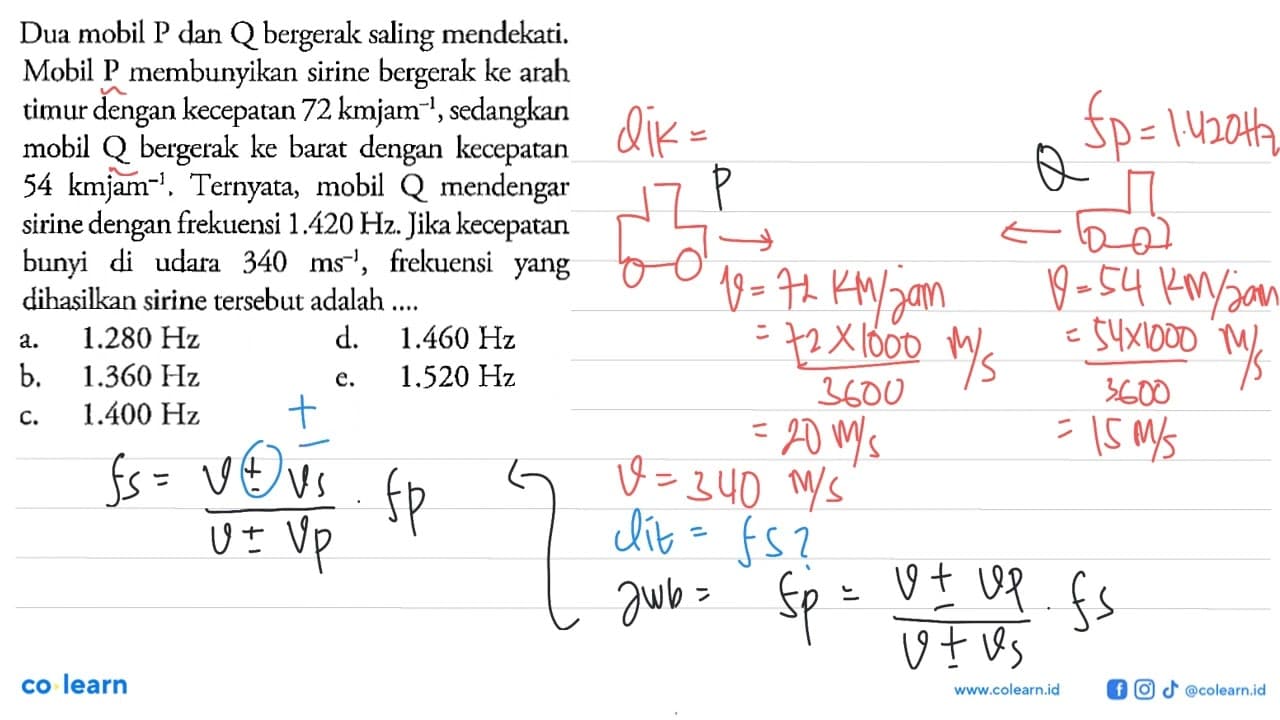 Dua mobil P dan Q bergerak saling mendekati.
Mobil P membunyikan sirine bergerak ke arah
timur dengan kecepatan 72 kmjam⁻¹, sedangkan
mobil Q bergerak ke barat dengan kecepatan
54 kmjam⁻¹. Ternyata, mobil Q mendengar
sirine dengan frekuensi 1.420 Hz. Jika kecepatan
bunyi di udara 340 ms⁻¹, frekuensi yang
dihasilkan sirine tersebut adalah ....
a. 1.280 Hz
b. 1.360 Hz
c. 1.400 Hz
d. 1.460 Hz
e. 1.520 Hz
+
fs = v ± vs / v ± vp . fp
dik =
P
v = 72 km/jam
= 72 x 1000 / 3600 m/s
= 20 m/s
Q
fp = 1.420 Hz
v = 54 km/jam
= 54x1000 / 3600 m/s
= 15 m/s
v = 340 m/s
dit = fs?
jwb = fp = v ± vp / v ± vs . fs
co learn
www.colearn.id
@colearn.id